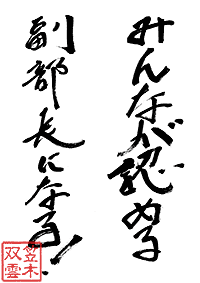 みんなが認める
副部長になる!
笠木
双雲